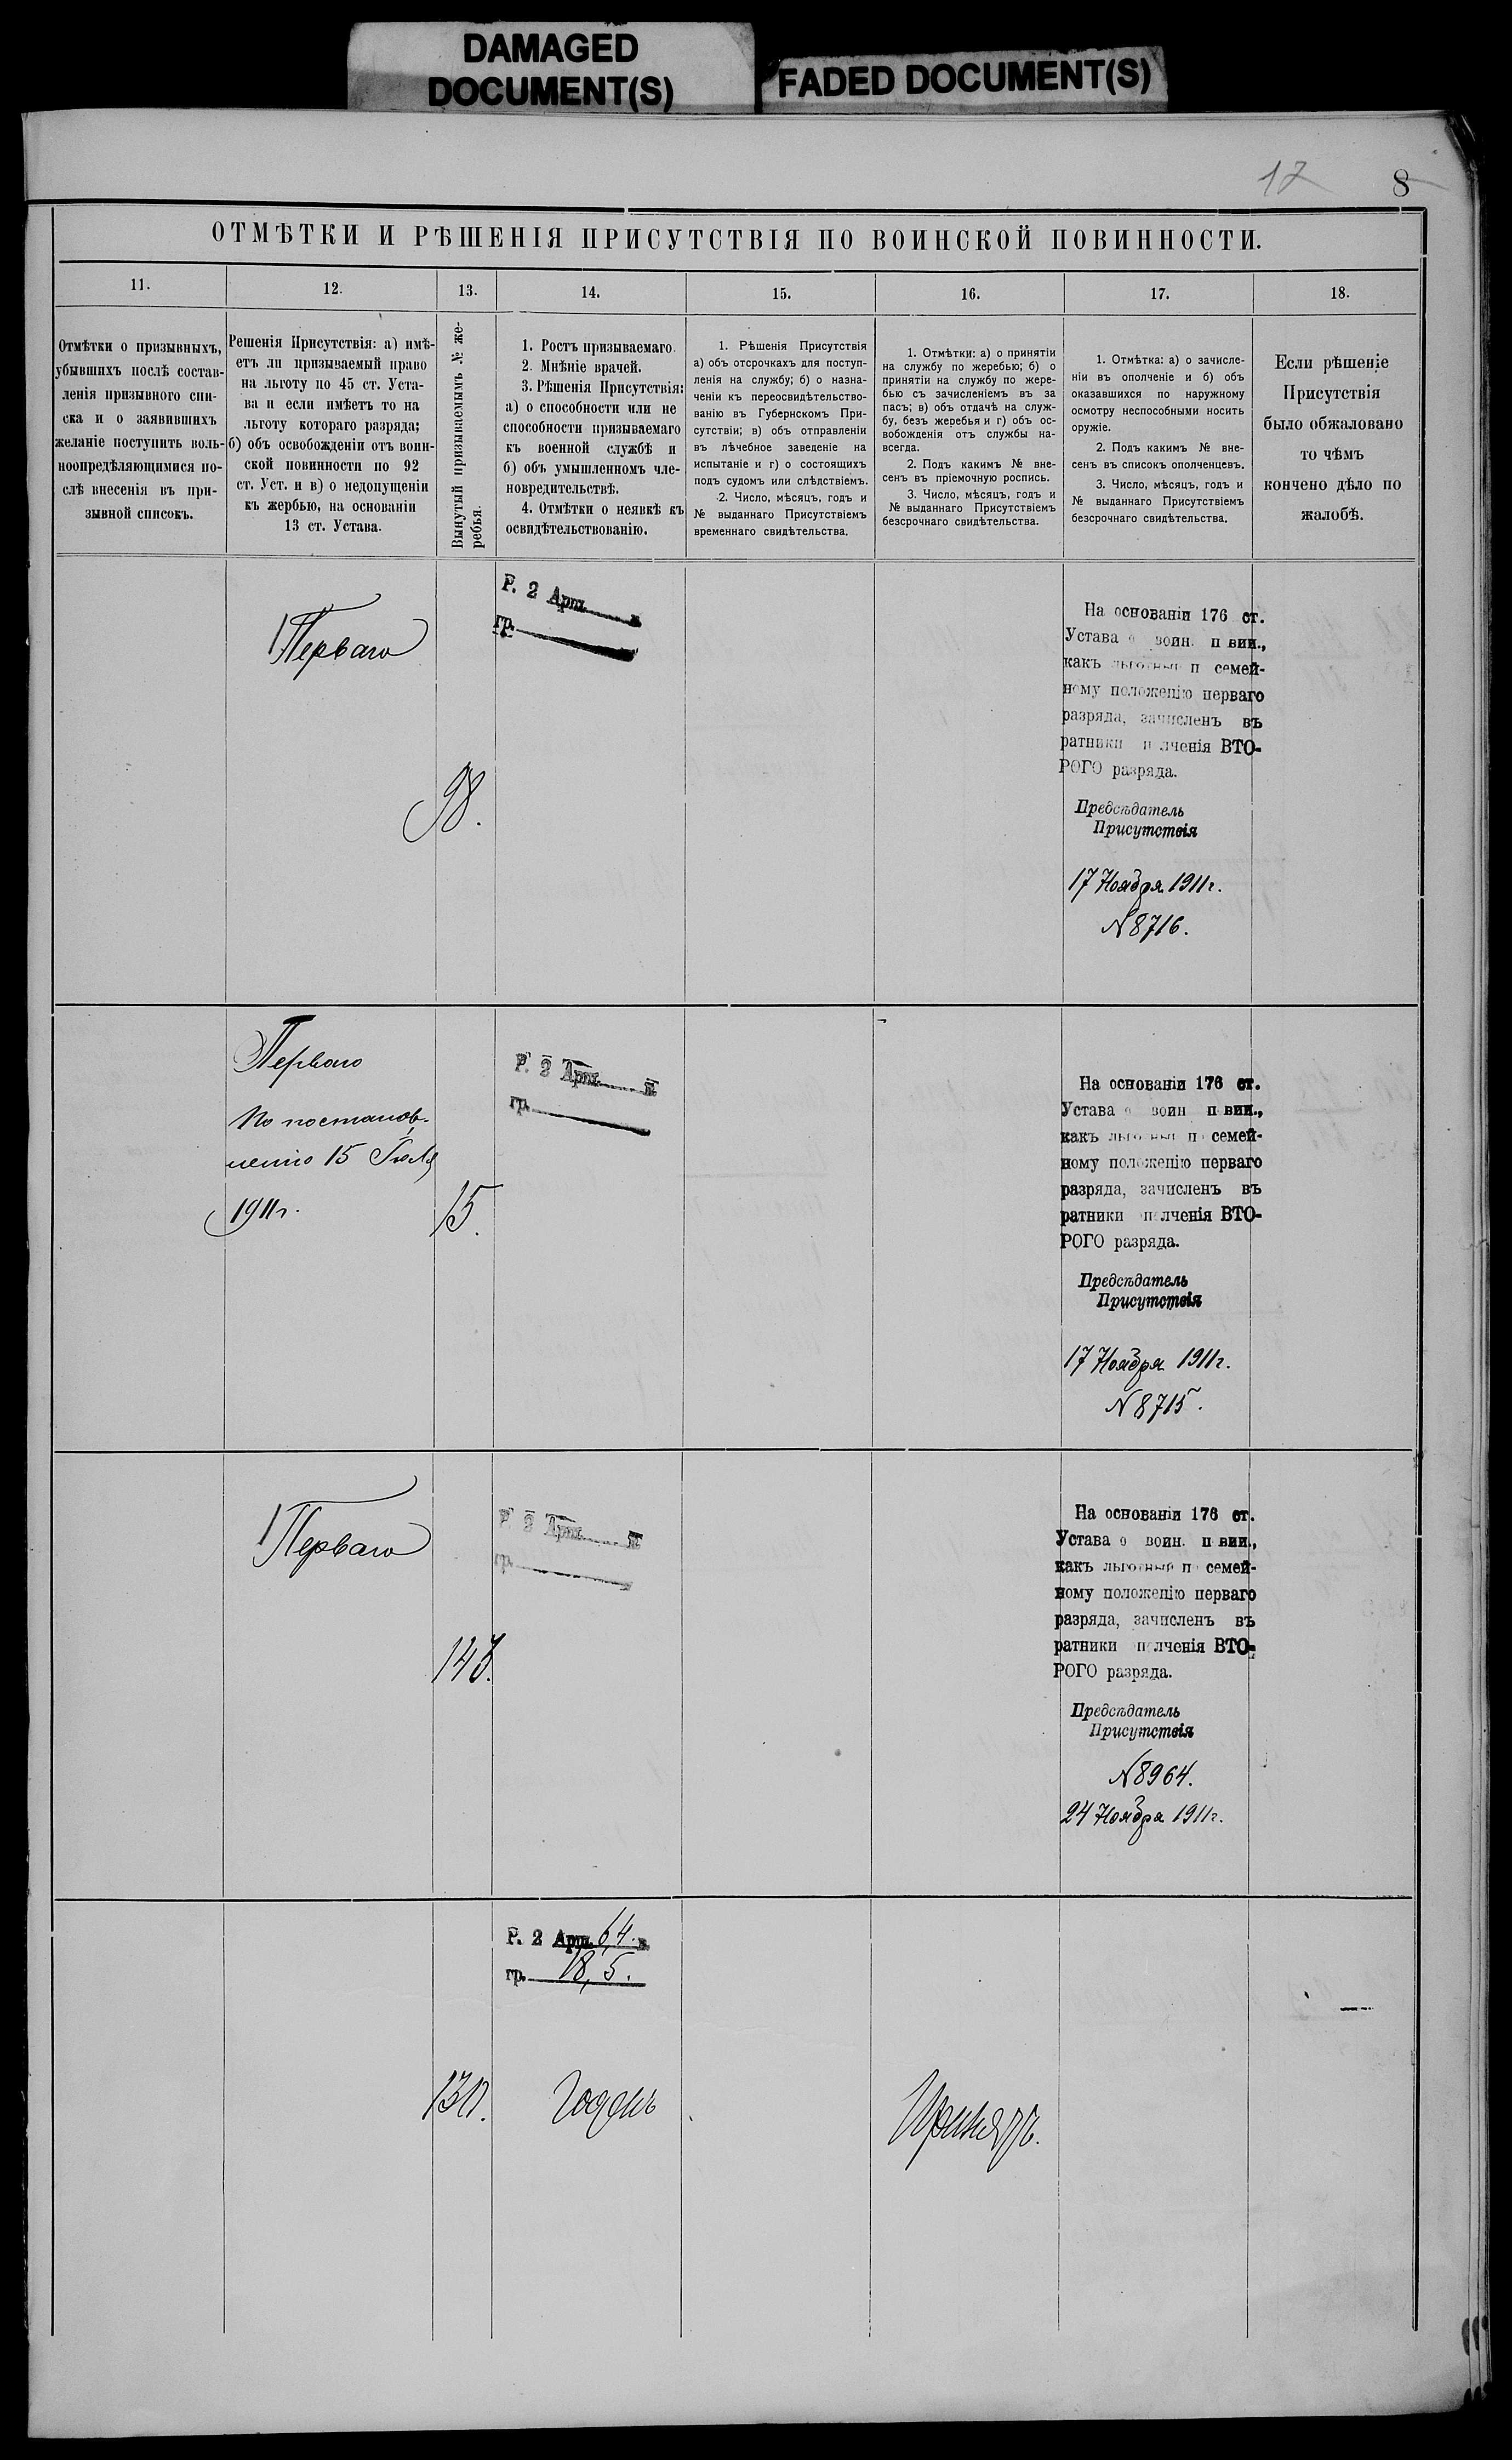 DAMAGED
DOCUMENT(S)
FADED DOCUMENT(S)
12
8
ОТМѢТКИ И РѢШЕНІЯ ПРИСУТСТВІЯ ПО ВОИНСКОЙ ПОВИННОСТИ.
11.
12.
13.
14.
15.
16.
17.
18.
Отмѣтки о призывныхъ,
убывшихъ послѣ состав-
ленія призывного спи-
ска и о заявившихъ
желаніе поступить воль-
ноопредѣляющимися по-
слѣ внесенія въ при-
зывной списокъ.
Решенія Присутствія: а) имѣ-
етъ ли призываемый право
на льготу по 45 ст. Уста-
ва и если имѣетъ то на
льготу котораго разряда;
б) объ освобожденіи отъ воин-
ской повинности по 92
ст. Уст. и в) о недопущеніи
къ жербью, на основаніи
13 ст. Устава.
Вынутый призываемымъ № же-
ребья.
1. Ростъ призываемаго.
2. Мнѣніе врачей.
3. Рѣшенія Присутствія:
а) о способности или не
способности призываемаго
къ военной службѣ и
б) объ умышленномъ чле-
новредительствѣ.
4. Отмѣтки о неявкѣ къ
освидѣтельствованію.
1. Рѣшенія Присутствія
а) объ отсрочкахъ для поступ-
ленія на службу; б) о назна-
ченіи къ переосвидѣтельство-
ванію въ Губернскомъ При-
сутствіи; в) объ отправленіи
въ лѣчебное заведеніе на
испытаніе и г) о состоящихъ
подъ судомъ или слѣдствіемъ.
2. Число, мѣсяцъ, годъ и
№ выданнаго Присутствіемъ
временнаго свидѣтельства.
1. Отмѣтки: а) о принятіи
на службу по жеребью; б) о
принятіи на службу по жере-
бью съ зачисленіемъ въ за
пасъ; в) объ отдачѣ на служ-
бу, безъ жеребья и г) объ ос-
вобожденія отъ службы на-
всегда.
2. Подъ какимъ № вне-
сенъ въ пріемочную роспись.
3. Число, мѣсяцъ, годъ и
№ выданнаго Присутствіемъ
безсрочнаго свидѣтельства.
1. Отмѣтка: а) о зачисле-
ніи въ ополченіе и б) объ
оказавшихся по наружному
осмотру неспособными носить
оружіе.
2. Подъ какимъ № вне-
сенъ въ списокъ ополченцевъ.
3. Число, мѣсяцъ, годъ и
№ выданнаго Присутствіемъ
безсрочнаго свидѣтельства.
Если рѣшеніе
Присутствія
было обжаловано
то чѣмъ
кончено дѣло по
жалобѣ.
Перваго
98.
Р. 2 Арш. в
гр.
На основаніи 176 ст.
Устава о воин. п вин.,
какъ льготный п семей-
ному положенію перваго
разряда, зачисленъ въ
ратники п лченія ВТО-
РОГО разряда.
Предсѣдатель
Присутствія
17 Ноября 1911г.
№ 8716.
Перваго
по постанов-
ленію 15 Іюля
1911г.
15.
Р. 2 Арш. в
гр.
На основаніи 176 ст.
Устава о воин п вин.,
какъ льготный п семей-
ному положенію перваго
разряда, зачисленъ въ
ратники п лченія ВТО-
РОГО разряда.
Предсѣдатель
Присутствія
17 Ноября 1911г.
№ 8715.
Перваго
Р. 2 Арш. в
гр.
На основаніи 176 ст.
Устава о воин. п вин.,
какъ льготный п семей-
ному положенію перваго
разряда, зачисленъ въ
ратники п лченія ВТО-
РОГО разряда.
Предсѣдатель
Присутствія
№ 8964.
24 Ноября 1911г.
Р. 2 Арш. 6,4. в
гр. 18,5.
Годенъ
Принятъ.